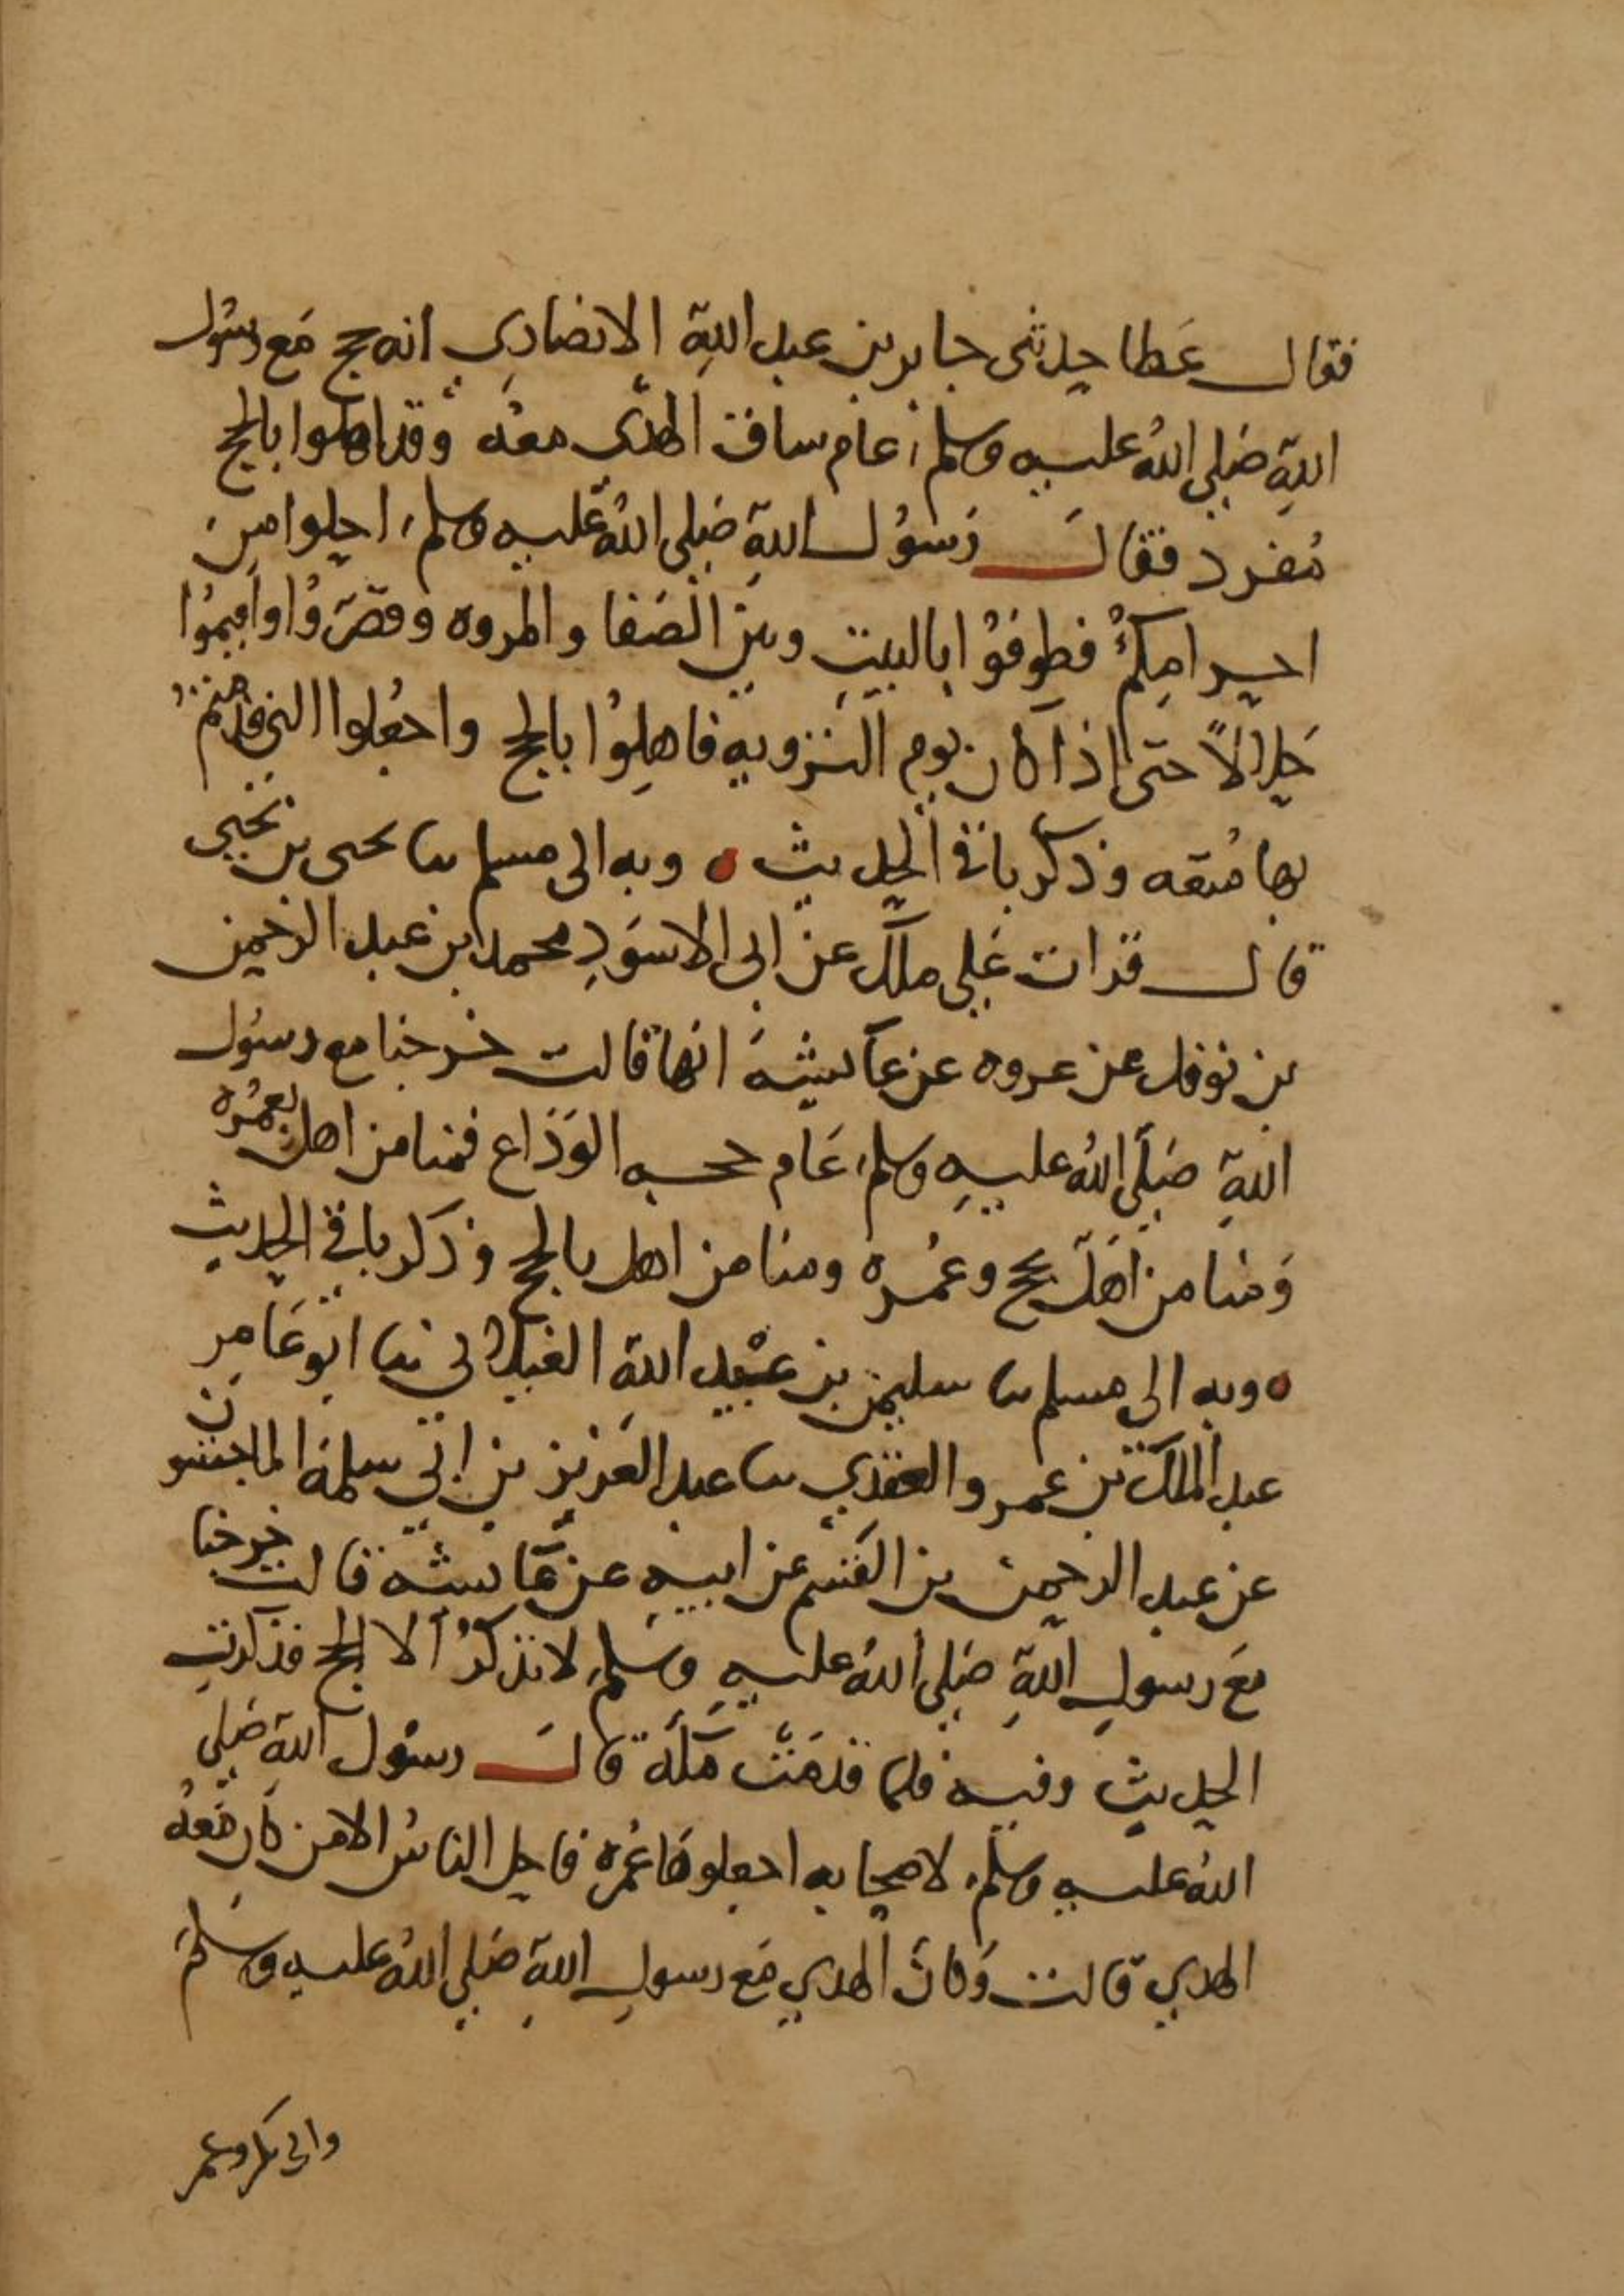 فقال عَطا حدثنى جابر بن عبد اللهِ الانصاري انه حج مَع رسُول
اللهِ صَلى اللهُ عليه وسلم عام ساق الهدى معهُ وقد اهلوا بالحج
مُفرد فقالَ رَسُول اللهِ صَلى اللهُ عَليه وسلم احلوا من
احرامِكمْ فطوفوُا بالبيتِ وبين الصَفا والمروه وقصّرُوا واقيمُوا
حَلالاً حتى اذا كان يوم التروية فاهِلوُا بالحج واجعَلوا التي قدمتم
بها مُتعه وذكر باقي الحديث ه وبه الى مسلم ثنا يحيى بن يَحيى
قال قرات عَلى ملك عن ابى الاسوَدِ محمد بن عبد الرحمن
بن نوفل عن عروه عن عآئشةَ انها قالت خرجنا مع رسُول
اللهِ صَلَى اللهُ عليهِ وسلم عَام حجه الوَدَاع فمنا من اهل بعمُره
وَمنا من اهَلّ بحج وعمُره ومنا من اهل بالحج وذكر باقي الحديث
ه وبه الى مسلم ثنا سليمن بن عبُيد اللهِ الغيلاني ثنا ابو عَامر
عبد الملك بن عمرو العقدي ثنا عبد العَزيز بن ابي سلمة الماجشون
عن عبد الرحمن بن القسم عن ابيهِ عن عَآئشة قالت خرجنا
مَع رسولِ اللهِ صَلى اللهُ عليهِ وسَلم لا نذكرُ الا الحج فذكرتِ
الحديث وفيه فلما قدمَتْ مكَة قالَ رسُول اللهِ صَلى
اللهُ عليه وسلم لاصحابه اجعلوهَا عُمرة فاحل الناسُ الا من كان مَعهُ
الهدي قالت وَكان الهدي مَع رسولِ اللهِ صَلى اللهُ عليه وسَلمَ
وابى بكر وعمر